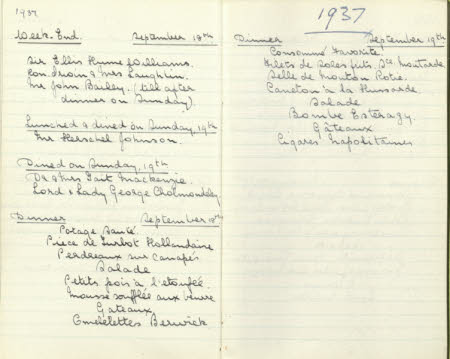 1937
Week-End. September 18th.
Sir Ellis Hume Williams.
Mr John Bailey. (till after
dinner on Sunday).
Lunched & dined on Sunday, 19th
Mr Herschel Johnson.
Dined on Sunday, 19th
Dr & Mrs Tait Mackenzie.
Lord & Lady George Cholmondeley
Dinner September 18th
Potage Santé.
Pièce de Turbot Hollandaise
Perdreaux sur canapés
Salade
Petits pois à l'étouffée.
Mousse soufflée aux
Gateaux.
Omelettes Berwick
1937
Dinner September 19th
Consommé Favorite.
Filets de Soles frits. Sce Moutarde.
Selle de Mouton Rotie.
Caneton à la Hussarde
Salade
Bombe Esteragy.
Gâteaux
Cigares Napolitaines